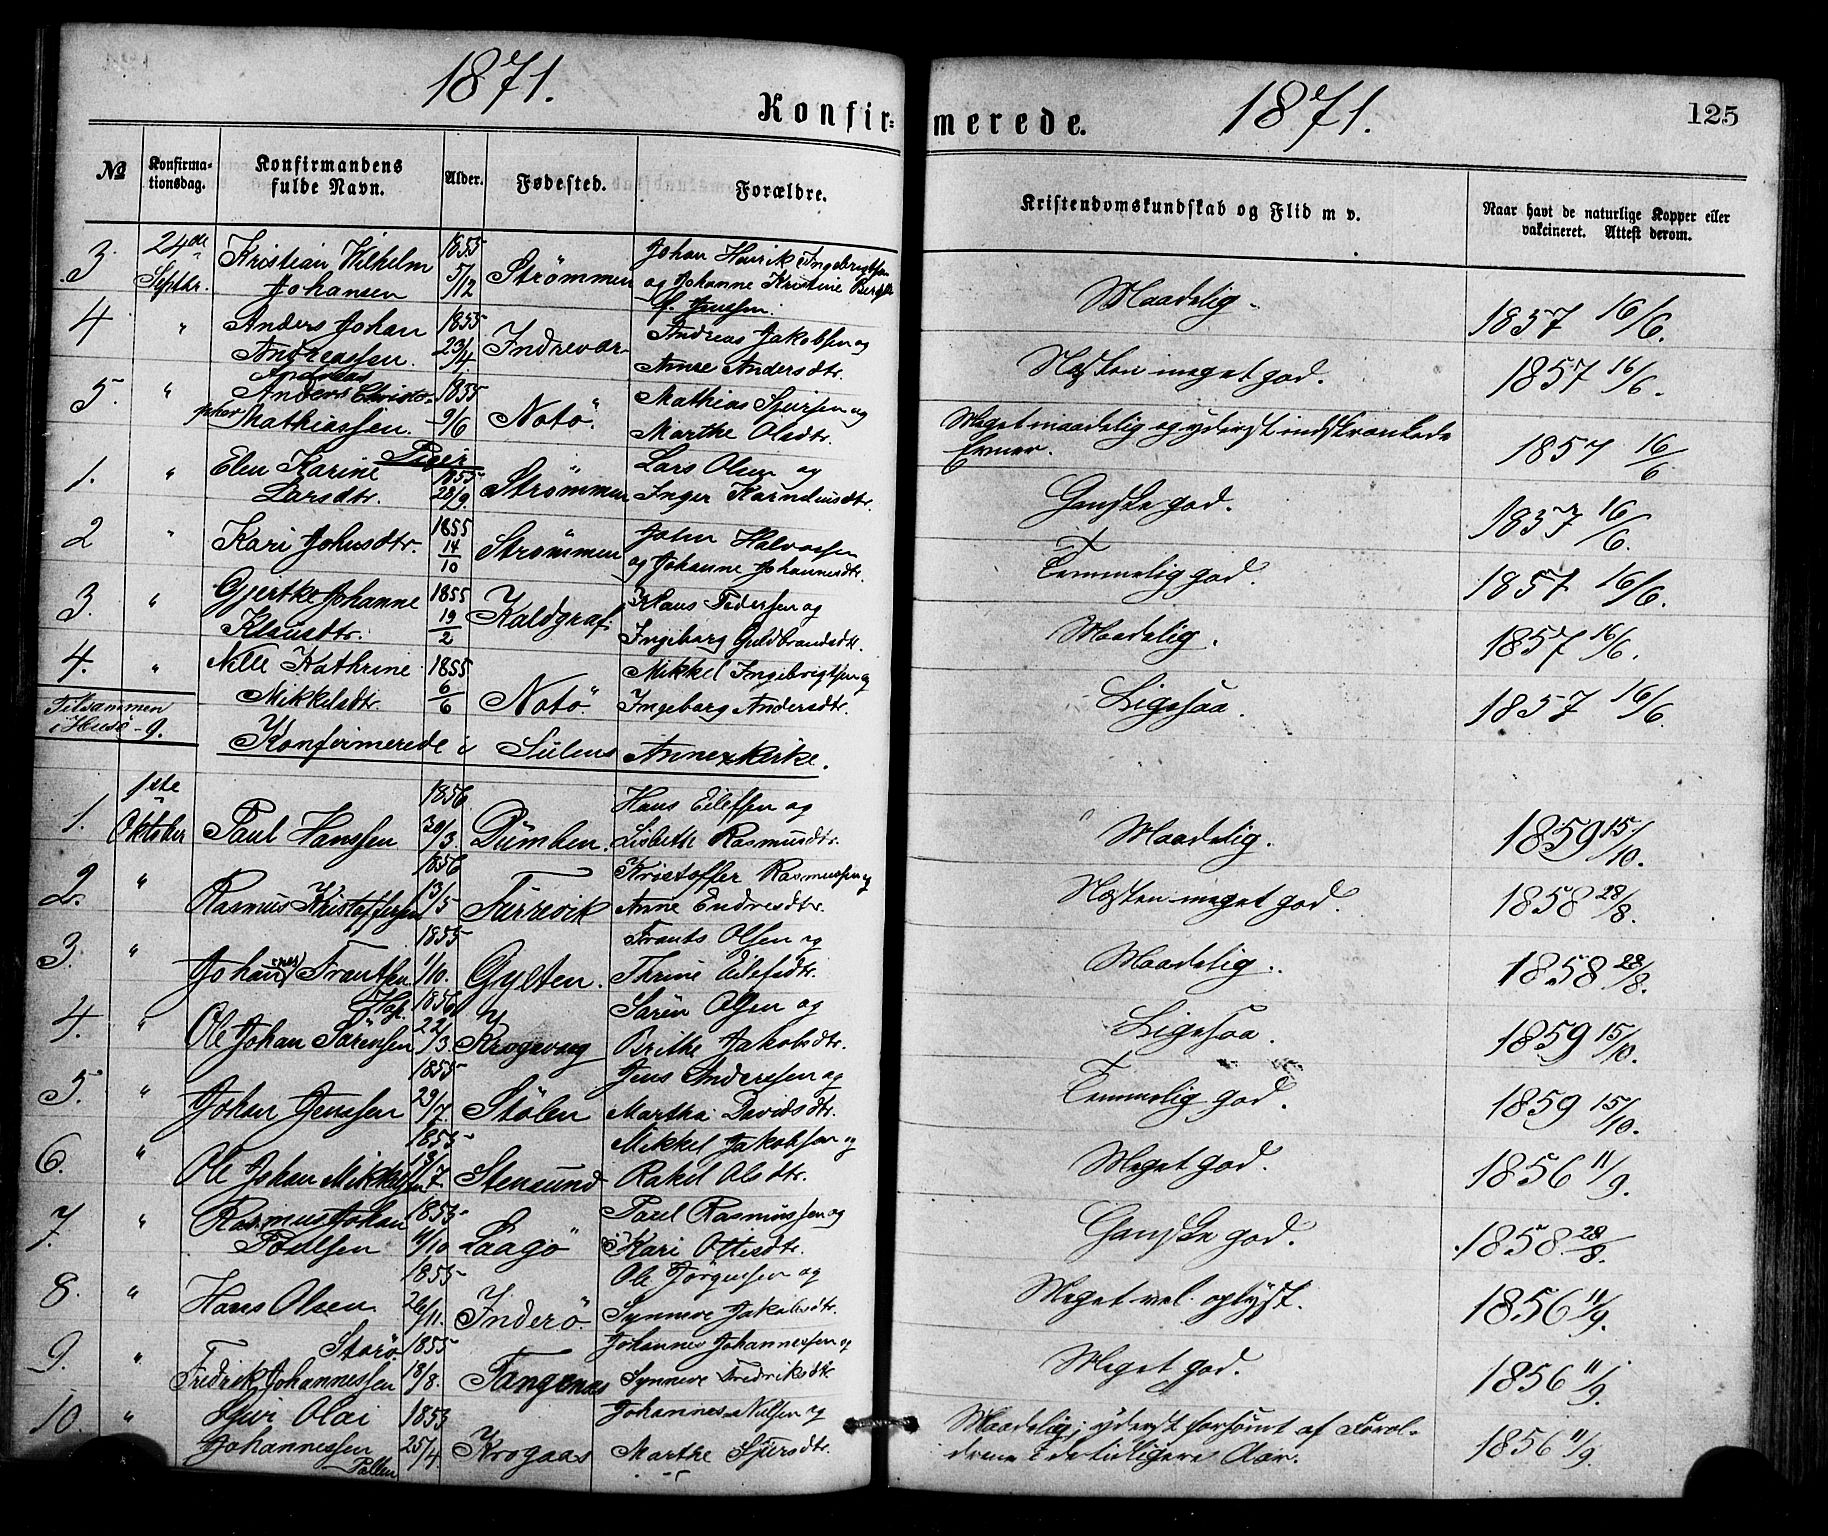 1871.
Konfir=
merede.
1871.
125
№
Konfirma-
tionsdag.
Konfirmandens
fulde Navn.
Alder.
Fødested.
Forældre.
Kristendomskundskab og Flid m v.
Naar havt de naturlige Kopper eller
vakcineret. Attest derom.
3. 24de Septbr. Kristian Vilhelm Johansen 1855 5/12 Strømmen Johan Henrik Ingebrigtsen og Johanne Kristine f. Jenssen. Maadelig. 1857 16/6.
4 " Anders Johan Andreassen. 1855 23/4 Indrevær Andreas Jakobsen og Anne Andersdtr. Næsten meget god. 1857 16/6.
5. " Andreas Anders Christopher Mathiassen. 1855 9/6 Notö. Mathias Sjursen og Marthe Olsdtr. Meget maadelig og yderst indskrænkede Evner. 1857 16/6
Piger
1. " Elen Karine Larsdtr. 1855 28/9. Strømmen Lars Olsen og Inger Karndusdtr. Ganske god. 1857 16/6.
2 " Kari Johnsdtr. 1855 14/10 Strømmen John Halvorsen og Johanne Johannesdtr. Temmelig god. 1857 16/6.
3. " Gjertke Johanne Klausdtr. 1855 19/2 Kaldgraf. Klaus Pedersen og Ingeborg Guldbrandsdtr. Maadelig. 1857 16/6.
4. " Nille Kathrine Mikkelsdtr. 1855 6/6 Notö. Mikkel Ingebrigtsen og Ingeborg Andersdtr. Ligesaa. 1857 16/6.
Tilsammen
i Husö - 9.
Konfirmerede i Sulens Annexkirke.
1. 1ste Oktober Paul Hanssen 1856 30/3 Dumben. Hans Eilefsen og Lisbeth Rasmusdtr. Maadelig. 1859 15/10.
2. " Rasmus Kristoffersen 1856 13/5 Furrevik Kristoffer Rasmussen og Anne Endresdtr. Næsten meget god. 1858 28/8.
3. " Johannes Frantsen 1855 1/10. Gylten. Frants Olsen og Thrine Eilefsdtr. Maadelig. 1858 28/8.
4. " Ole Johan Sörensen 1856 22/3. Krogevaag Sören Olsen og Brithe Jakobsdtr. Ligesaa. 1859 15/10.
5. " Johan Jenssen 1855 29/7. Stölen Jens Anderssen og Martha Davidsdtr. Temmelig god. 1859 15/10.
6. " Ole Johan Mikkelsen 1855 Stensund Mikkel Jakobsen og Rakel Olsdtr. Meget god. 1856 11/9.
7. " Rasmus Johan Poulsen 1855 11/10 Laagö Paul Rasmussen og Kari Ottesdtr. Ganske god. 1858. 28/8.
8. " Hans Olsen 1855 26/11. Inderö. Ole Jörgensen og Synneve Jakobsdtr. Meget vel oplyst. 1856 11/9.
9. " Storö. Fredrik Johannessen 1855 13/8. Tangenes Johannes Johannessen og Synneve Fredriksdtr. Meget god. 1856 11/9.
10. " Sjur Olai Johannessen Pollen 1853 25/4 Krogaas Johannes Nilsen og Marthe Sjursdtr. Maadelig; yderst forsömt af Forældrene i de tidligere Aar. 1856 11/9.